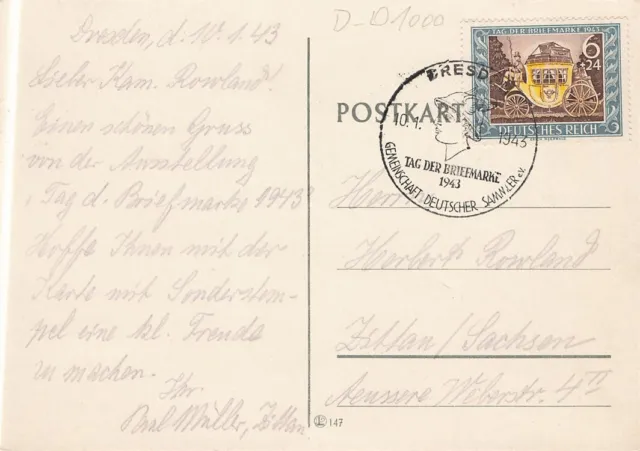 Dresden, d. 10.1.43
Lieber Kam. Rowland!
Einen schönen Gruss
von der Ausstellung
"Tag d. Briefmarke 1943"
Hoffe Ihnen mit der
Karte mit Sonderstem-
pel eine kl. Freude
zu machen.
Ihr
Müller, Zittau
D-D1000
TAG DER BRIEFMARKE 1943
6+24
DEUTSCHES REICH
DRESDEN
10.1.
1943
TAG DER BRIEFMARKE
1943
GEMEINSCHAFT DEUTSCHER SAMMLER e.V.
POSTKARTE
Herrn
Herbert Rowland
Zittau/Sachsen
Aeussere Weberstr. 4 II
147